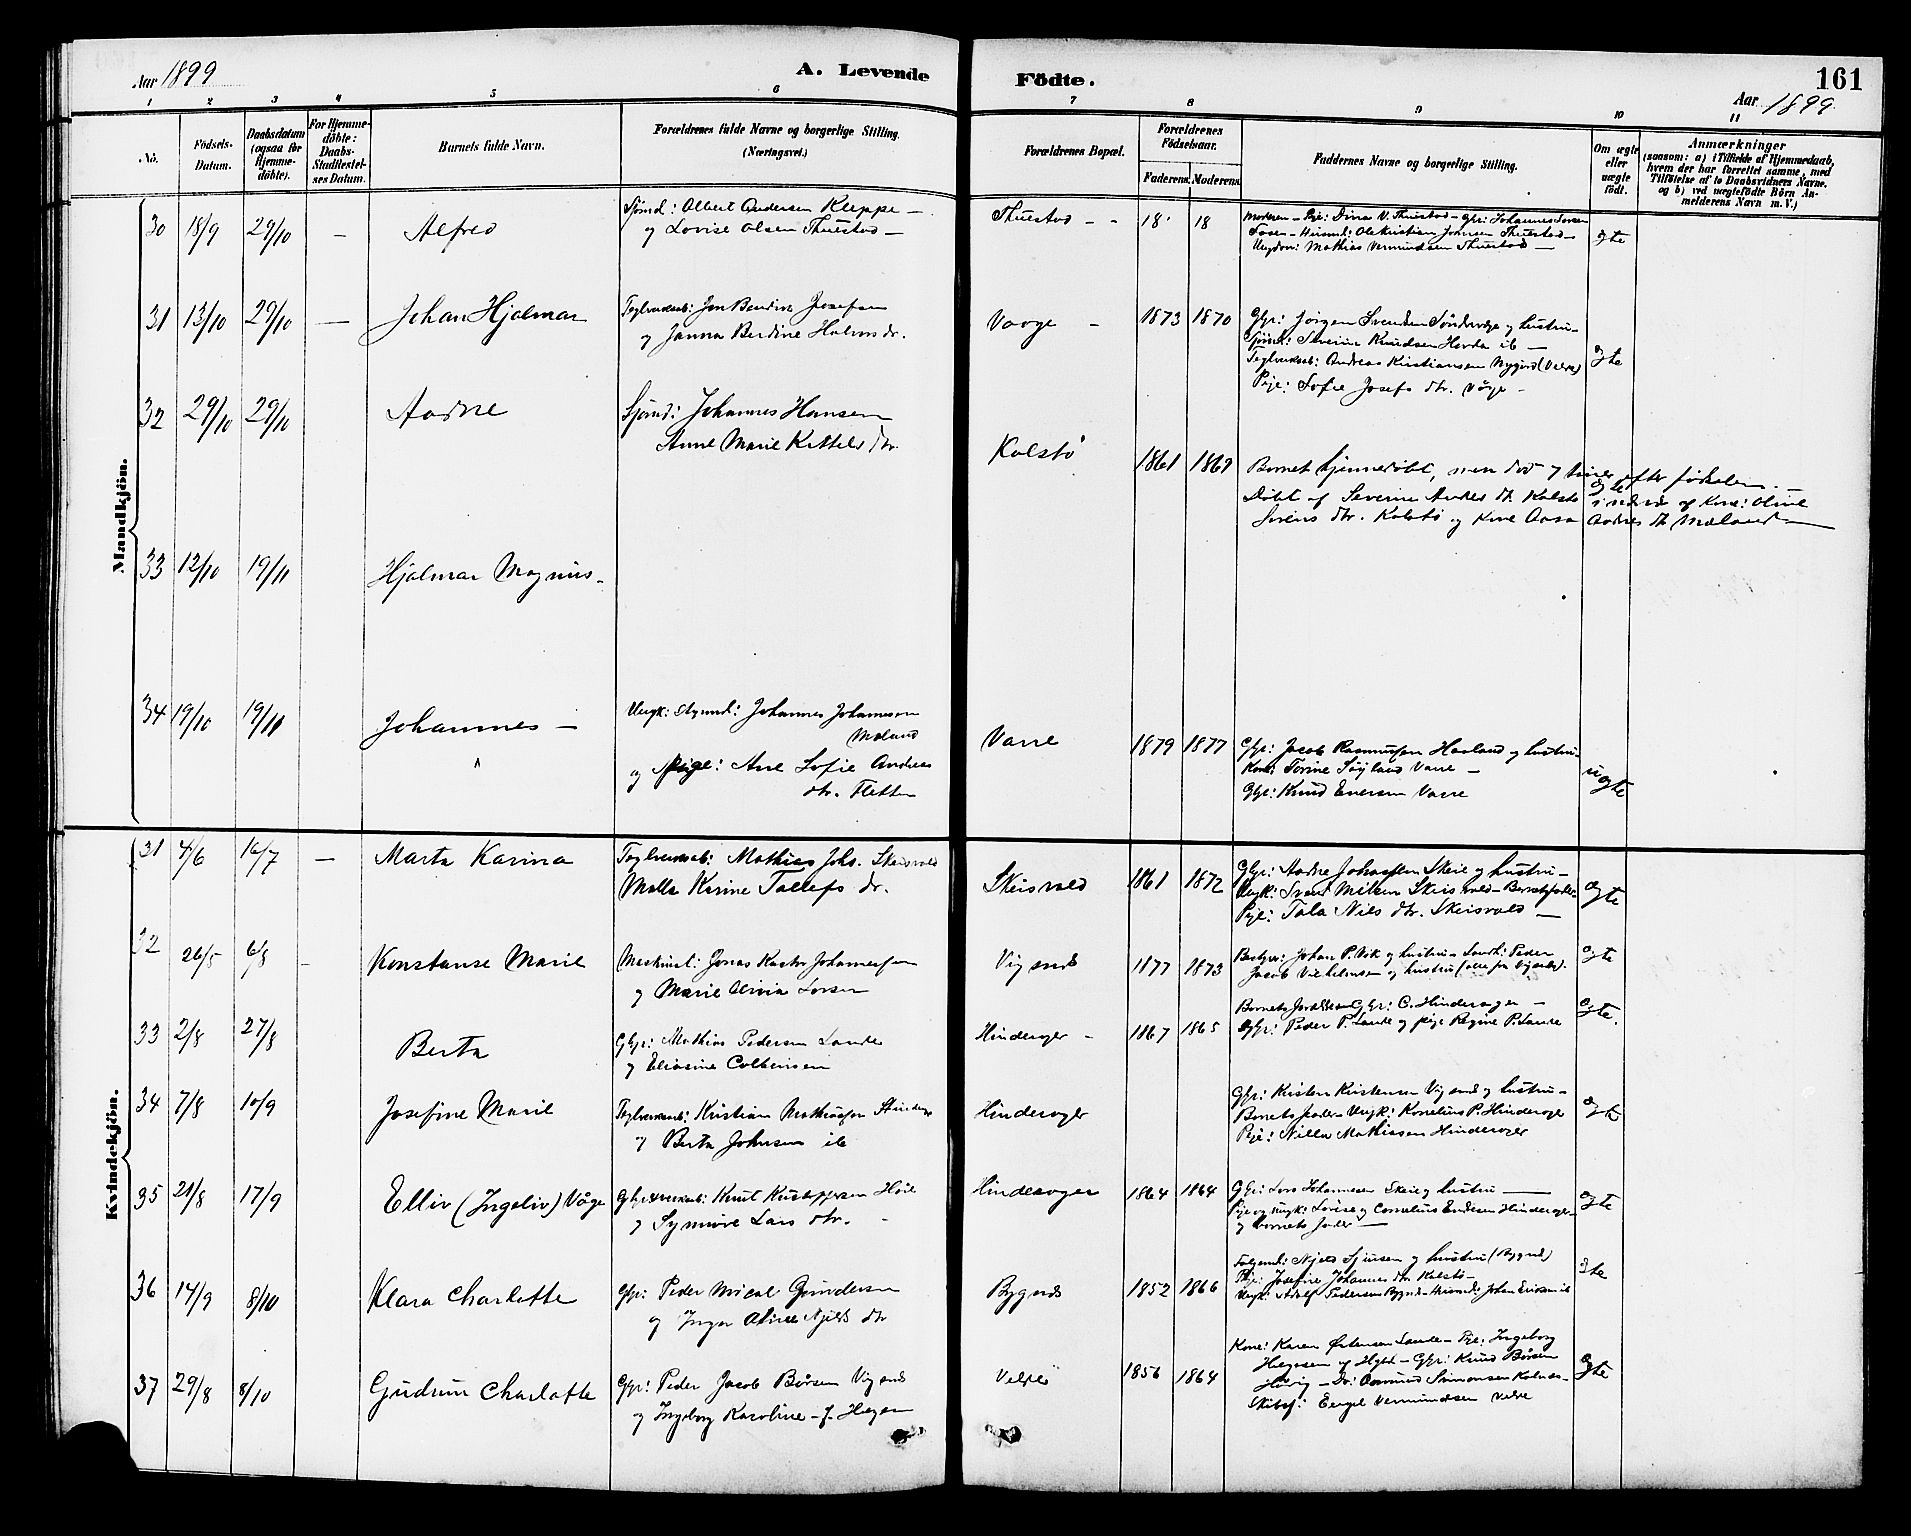 Aar 1899
A. Levende
Födte.
161
Aar 1899.
1 2 3 4 5 6 7 8 9 10 11
No.
Födsels-
Datum.
Daabsdatum
(ogsaa for
Hjemme-
döbte).
For Hjemme-
döbte:
Daabs-
Stadfæstel-
ses Datum.
Barnets fulde Navn.
Forældrenes fulde Navne og borgerlige Stilling.
(Næringsvei.)
Forældrenes Bopæl.
Forældrenes
Födselsaar.
Faderens. Moderens.
Faddernes Navne og borgerlige Stilling.
Om ægte
eller
uægte
födt.
Anmærkninger
(saasom: a) i Tilfælde af Hjemmedaab,
hvem der har forrettet samme, med
Tilföielse af to Daabsvidners Navne.
og b) ved uægtefödte Börn An-
melderens Navn m. V.)
Mandkjön.
30 18/9 29/10 — Alfred
Sjömd: Albert Andersen Kleppe —
og Lovise Olsen Thuestad —
Thuestad - - 18 18
Moderen — Pige: Dina V. Thuestad — Gbr: Johannes
Ole Kristian Johnsen Thuestad —
Ungdom: Mathias Vermundsen Thuestad —
ægte
31 13/10 29/10 — Johan Hjalmar
Teglverksarb: Jon Berdine Josefsen
og Janna Berdine Holm dr.
Vaage - 1873 1870
Gbr: Jørgen Svendsen og hustru —
Sjömd: Severin Knudsen Hovda ib —
Teglverksarb: Andreas Kristiansen Nygård
Pige: Sofie Josefs dtr. Våge —
ægte
32 29/10 29/10 Aadne
Sjömd: Johannes Hansen
Anne Marie Kittels dtr.
Kolstö 1861 1869
Barnet hjemmedöbt, men död 7 timer efter födselen. —
Döbt af Severine Andres dtr Kolstö i nærvær af Kone: Oline
Sörens dtr. Kolstö og Kone Aasa Aadnes dtr Mæland —
ægte
33 12/10 19/11 Hjalmar Magnus —
34 19/10 19/11 Johannes —
Ungk: Johannes Johannesen
Mæland
og Pige: Ane Sofie Andreas
dtr. Fletten
Varre 1879 1877
Gbr: Jacob Rasmussen Haaland og hustru —
Kone: Torine Søyland Varre —
Gbr: Knud Eversen Varre
uægte
Kvindekjön.
31 4/6 16/7 — Marta Karina
Teglverksarb: Mathias Johs. Skeisvold
Malla Karine Tallefs dr.
Skeisvold 1861 1872
Gbr: Aadne Johansen Skeie og hustru —
Ungk: Svend Nilsen Skeisvold — Barnets fader —
Pige: Tala Nils dtr. Skeisvold —
ægte
32 26/5 6/8 — Konstanse Marie
Maskinist: Jonas Kastor Johannesen
og Marie Olivia Larsen
Vigsnæs 1877 1873
Bestyr: Johan P. Vik og hustru — Peder
Jacob Vilhelmsen og hustru (alle fra Vigsnæs).
ægte
33 2/8 27/8 Berta
Gbr: Mathias Pedersen Lande
og Eliasine Colbensen
Hinderager - 1867 1865
Barnets forældre Gbr: C. Hinderager —
Gbr: Peder P. Lande og pige Regine P. Lande
ægte.
34 7/8 10/9 Josefine Marie
Teglverksarb: Kristian Mathiasen
og Berta Johnsen ib
Hinderager
Gbr: Kristen Kristensen Vigsnæs og hustru —
Barnets fader — Ungk: Kornelius P. Hinderager
Pige: Nilla Mathiasen Hinderager
ægte
35 21/8 17/9 Elliv (Ingeliv) Våge
Knut Høie
og Synnöve Lars dtr. -
Hinderager 1864 1864
Gbr: Lars Johannesen Skeie og hustru —
Pige og Ungk: Lovise og Cornelius Endresen Hinderager —
og barnets fader —
ægte
36 14/9 8/10 Klara Charlotte
Gbr: Peder Mical Gundersen
og Inger Oline Njels dtr
Bygnes 1852 1866
Njels Sjursen og hustru (Bygnes)
Pige: Josefine Johannes dtr Kolstö —
Ungk: Adolf Pedersen Bygnes — Johan Eriksen ib
ægte
37 29/8 8/10 Gudrun Charlotte
Gbr: Peder Jacob Börsen Vigsnes
og Ingeborg Karoline — f. Hegen
Velde 1856 1864
Kone: Karen Østensen Lande — Pige: Ingeborg
Helgesen — Gbr: Knud Börsen
Høvig — Do: Osmund Simonsen Kolnes —
Skibsf: Engel Vermundsen Velde
ægte